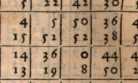 5 22 41 30
4 5 50 36
15 52 52 38
14 36 0 44
13 19 8 50